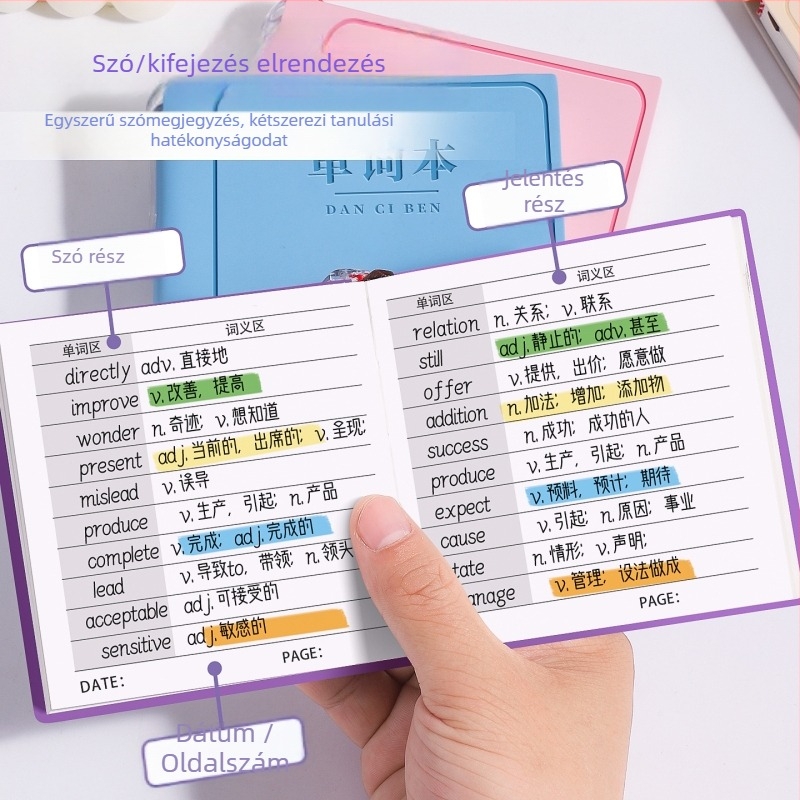 Szó/kifejezés elrendezés
Egyszerű szómegjegyzés, kétszerezi tanulási
hatékonyságodat
单词本
DAN CI BEN
Jelentés
rész
Szó rész
单词区 词义区
directly adv. 直接地
improve v. 改善, 提高
wonder n. 奇迹; v. 想知道
present adj. 当前的, 出席的; v. 呈现;
mislead v. 误导
produce v. 生产, 引起; n. 产品
complete v. 完成; adj. 完成的
lead v. 导致to, 带领; n. 领头
acceptable adj. 可接受的
sensitive adj. 敏感的
DATE: PAGE:
单词区 词义区
relation n. 关系; v. 联系
still adj. 静止的; adv. 甚至
offer v. 提供, 出价; 愿意做
addition n. 加法; 增加; 添加物
success n. 成功; 成功的人
produce v. 生产, 引起; n. 产品
expect v. 预料, 预计; 期待
cause v. 引起; n. 原因; 事业
tate n. 情形; v. 声明;
anage v. 管理; 设法做成
PAGE:
Dátum /
Oldalszám